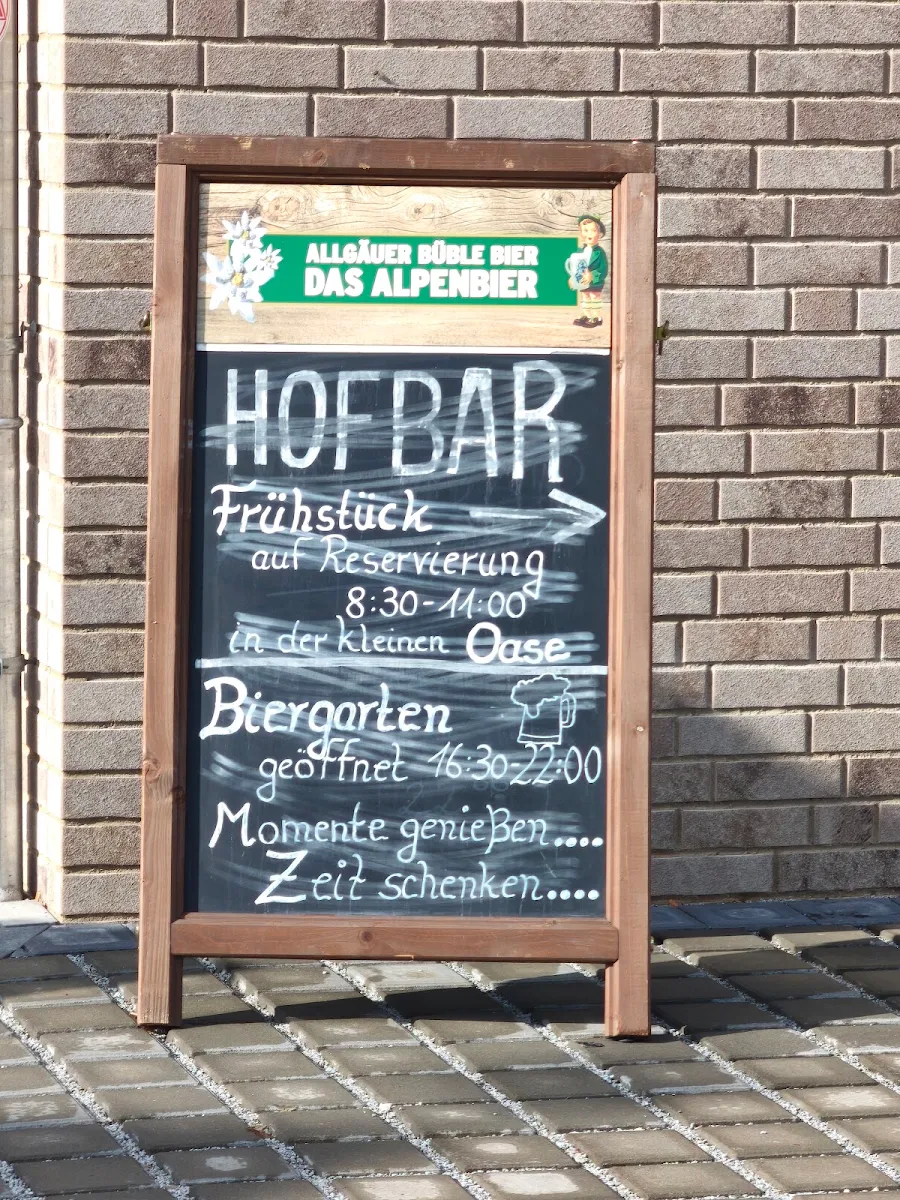 ALLGÄUER BÜBLE BIER
DAS ALPENBIER
HOFBAR
Frühstück
auf Reservierung
8:30-11:00
in der kleinen Oase
Biergarten
geöffnet 16:30-22:00
Momente genießen....
Zeit schenken....